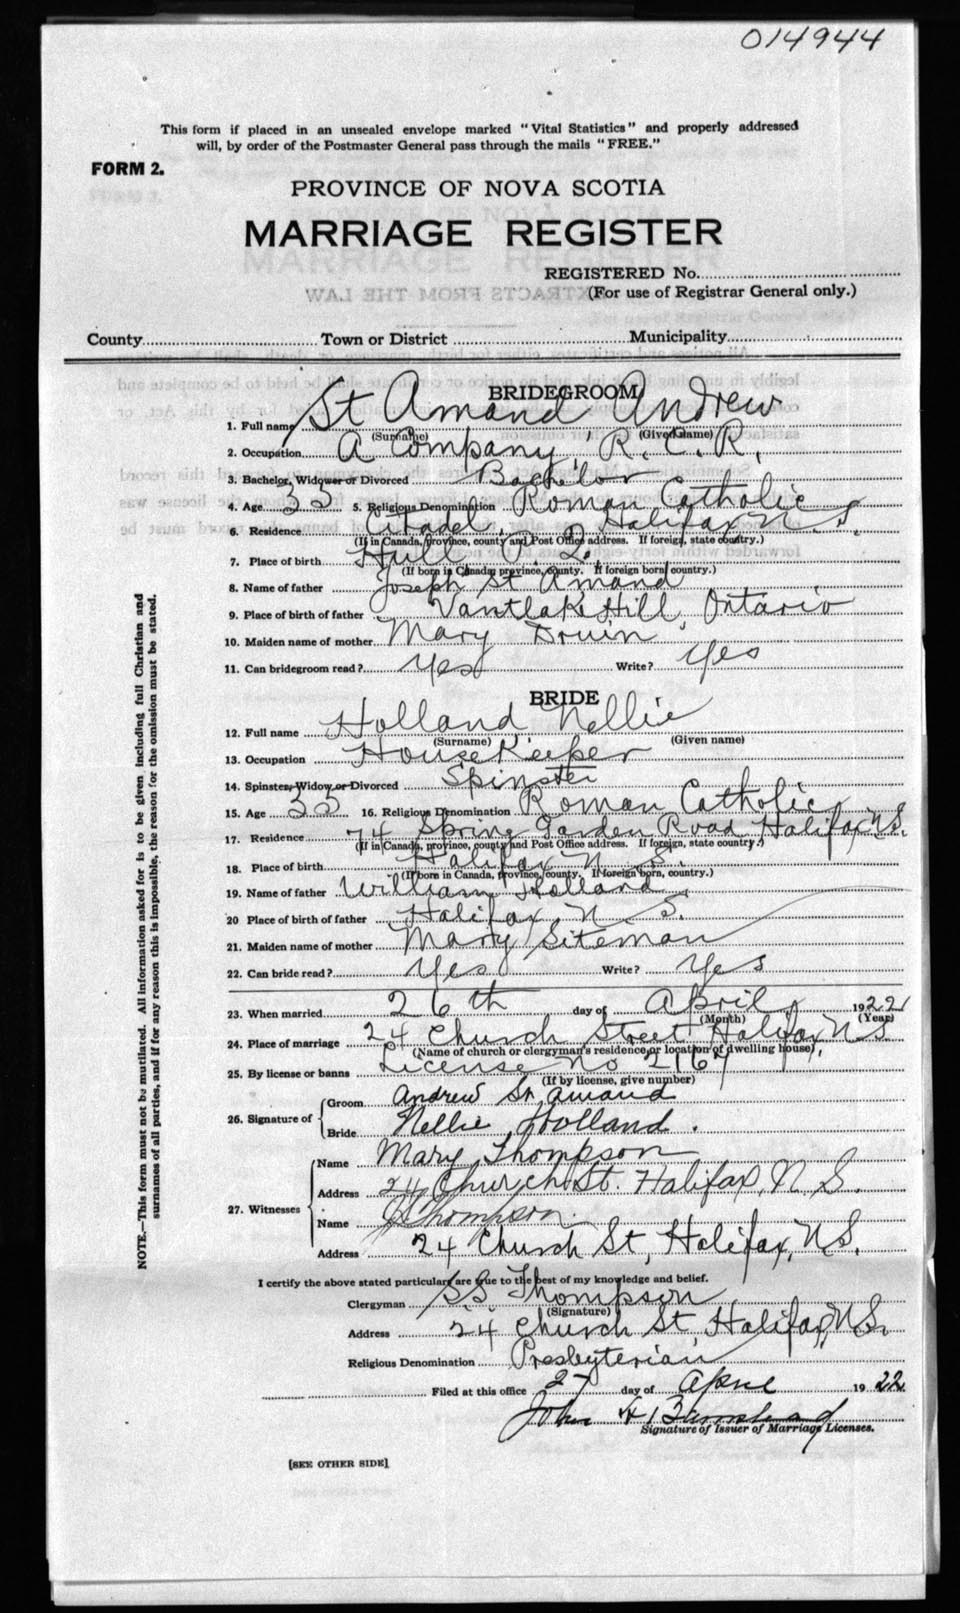 014944
This form if placed in an unsealed envelope marked "Vital Statistics" and properly addressed
will, by order of the Postmaster General pass through the mails "FREE."
FORM 2.
PROVINCE OF NOVA SCOTIA
MARRIAGE REGISTER
REGISTERED No.
(For use of Registrar General only.)
County Town or District Municipality
BRIDEGROOM
1. Full name St Amand Andrew
(Surname) (Given name)
2. Occupation A Company, R. C. R.
3. Bachelor, Widower or Divorced Bachelor
4. Age 5. Religious Denomination Roman Catholic
6. Residence Citadel Halifax N. S.
(If in Canada, province, county and Post Office address. If foreign, state country.)
7. Place of birth Hull P. Q.
(If born in Canada, province, county. If foreign born, country.)
8. Name of father Joseph St Amand
9. Place of birth of father Vantlake Hill, Ontario
10. Maiden name of mother Mary Druin
11. Can bridegroom read? Yes Write? Yes
BRIDE
12. Full name Holland Nellie
(Surname) (Given name)
13. Occupation House Keeper
14. Spinster, Widow or Divorced Spinster
15. Age 16. Religious Denomination Roman Catholic
17. Residence 74 Spring Garden Road Halifax N.S.
(If in Canada, province, county and Post Office address. If foreign, state country.)
18. Place of birth Halifax N. S.
(If born in Canada, province, county. If foreign born, country.)
19. Name of father William Holland
20 Place of birth of father Halifax, N. S.
21. Maiden name of mother Mary Siteman
22. Can bride read? Yes Write? Yes
23. When married 26th day of April 1922
(Month) (Year)
24. Place of marriage 24 Church Street Halifax N.S.
(Name of church or clergyman's residence or location of dwelling house)
25. By license or banns License No 2167
(If by license, give number)
26. Signature of Groom Andrew St. Amand
Bride Nellie Holland.
27. Witnesses Name Mary Thompson
Address 24 Church St. Halifax, N. S.
Name J Thompson
Address 24 Church St, Halifax, N.S.
I certify the above stated particulars are true to the best of my knowledge and belief.
Clergyman Thompson
(Signature)
Address 24 Church St, Halifax, N.S.
Religious Denomination Presbyterian
Filed at this office 27 day of April 1922
John
Signature of Issuer of Marriage Licenses.
[SEE OTHER SIDE]
NOTE.—This form must not be mutilated. All information asked for is to be given, including full Christian and
surnames of all parties, and if for any reason this is impossible, the reason for the omission must be stated.